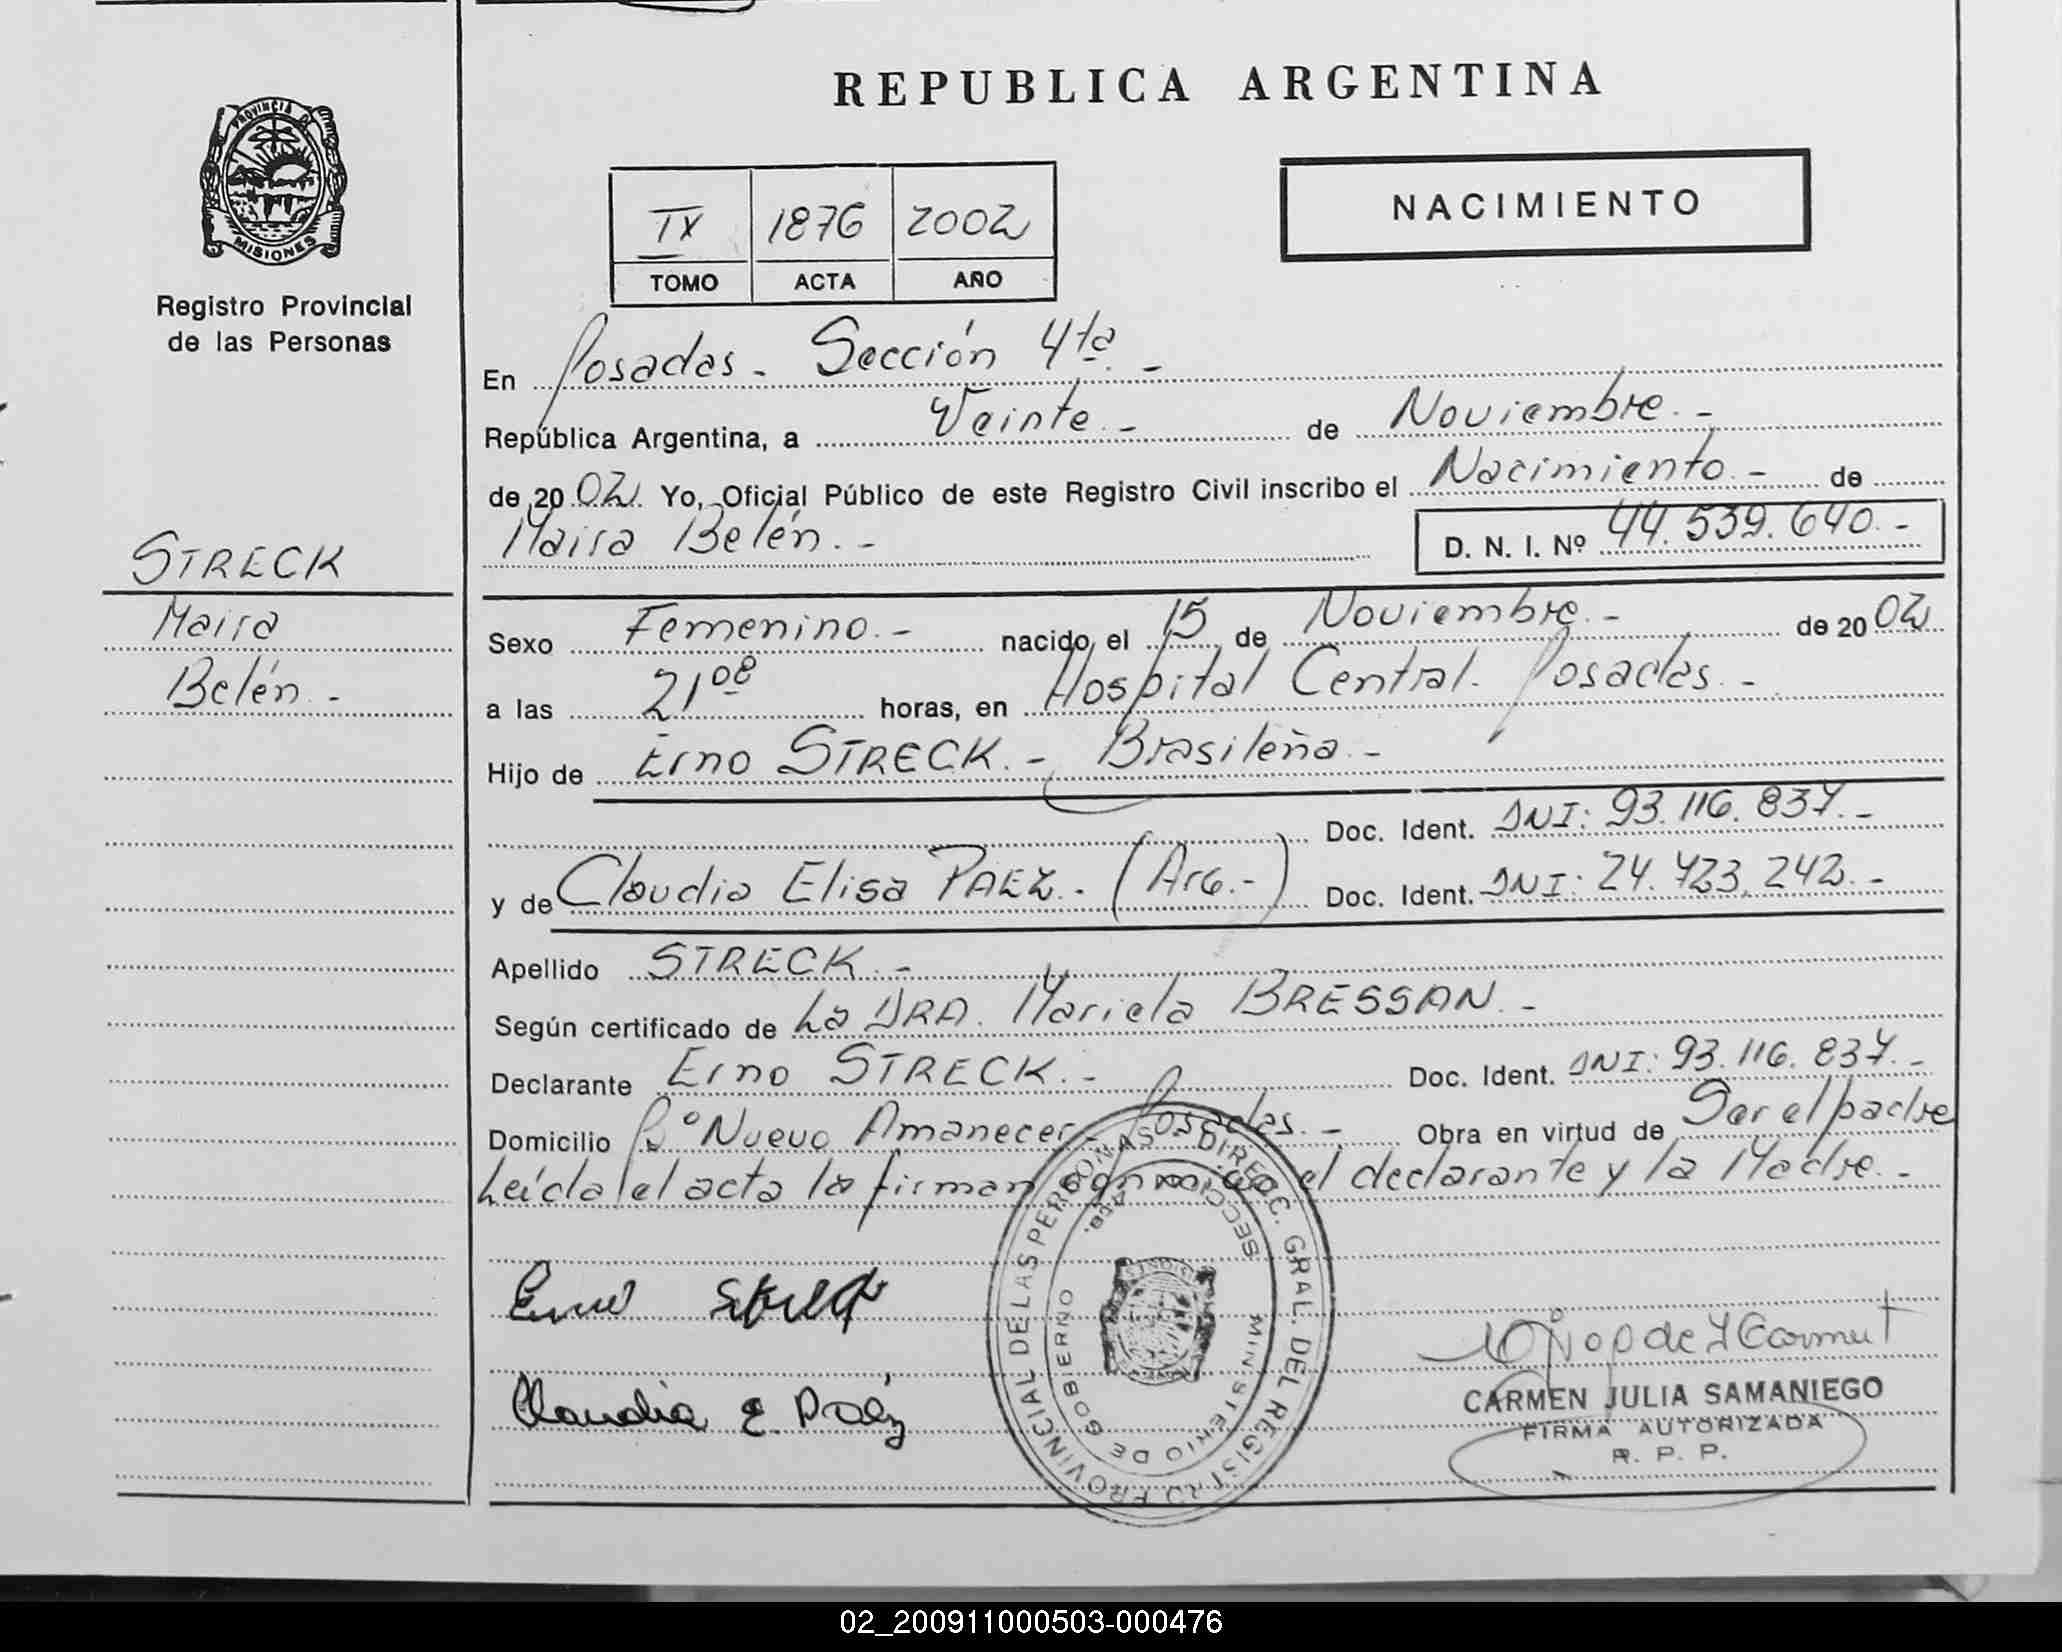 REPUBLICA ARGENTINA
PROVINCIA DE
MISIONES
Registro Provincial
de las Personas
NACIMIENTO
IX 1876 2002
TOMO ACTA AÑO
STRECK
Maira
Belén.-
En Posadas.- Sección 4ta.-
República Argentina, a Veinte.- de Noviembre.-
de 2002. Yo, Oficial Público de este Registro Civil inscribo el Nacimiento.- de
Maira Belén.- D. N. I. Nº 44.539.640.-
Sexo Femenino.- nacido, el 15 de Noviembre.- de 2002
a las 21 08 horas, en Hospital Central. Posadas.-
Hijo de Erno STRECK.- Brasileña.-
Doc. Ident. DNI: 93.116.837.-
y de Claudia Elisa PAEZ.- (Arg.-) Doc. Ident. DNI: 24.723.242.-
Apellido STRECK.-
Según certificado de La DRA. Mariela BRESSAN.-
Declarante Erno STRECK.- Doc. Ident. DNI: 93.116.837.-
Domicilio Bº Nuevo Amanecer- Posadas.- Obra en virtud de Ser el padre
Leída el acta la firman conmigo el declarante y la Madre.-
Erno Streck
Claudia E. Paéz
DIRECC. GRAL. DEL REGISTRO PROVINCIAL DE LAS PERSONAS
MINISTERIO DE GOBIERNO
SECCION 4ta.
CARMEN JULIA SAMANIEGO
FIRMA AUTORIZADA
R. P. P.
02_200911000503-000476